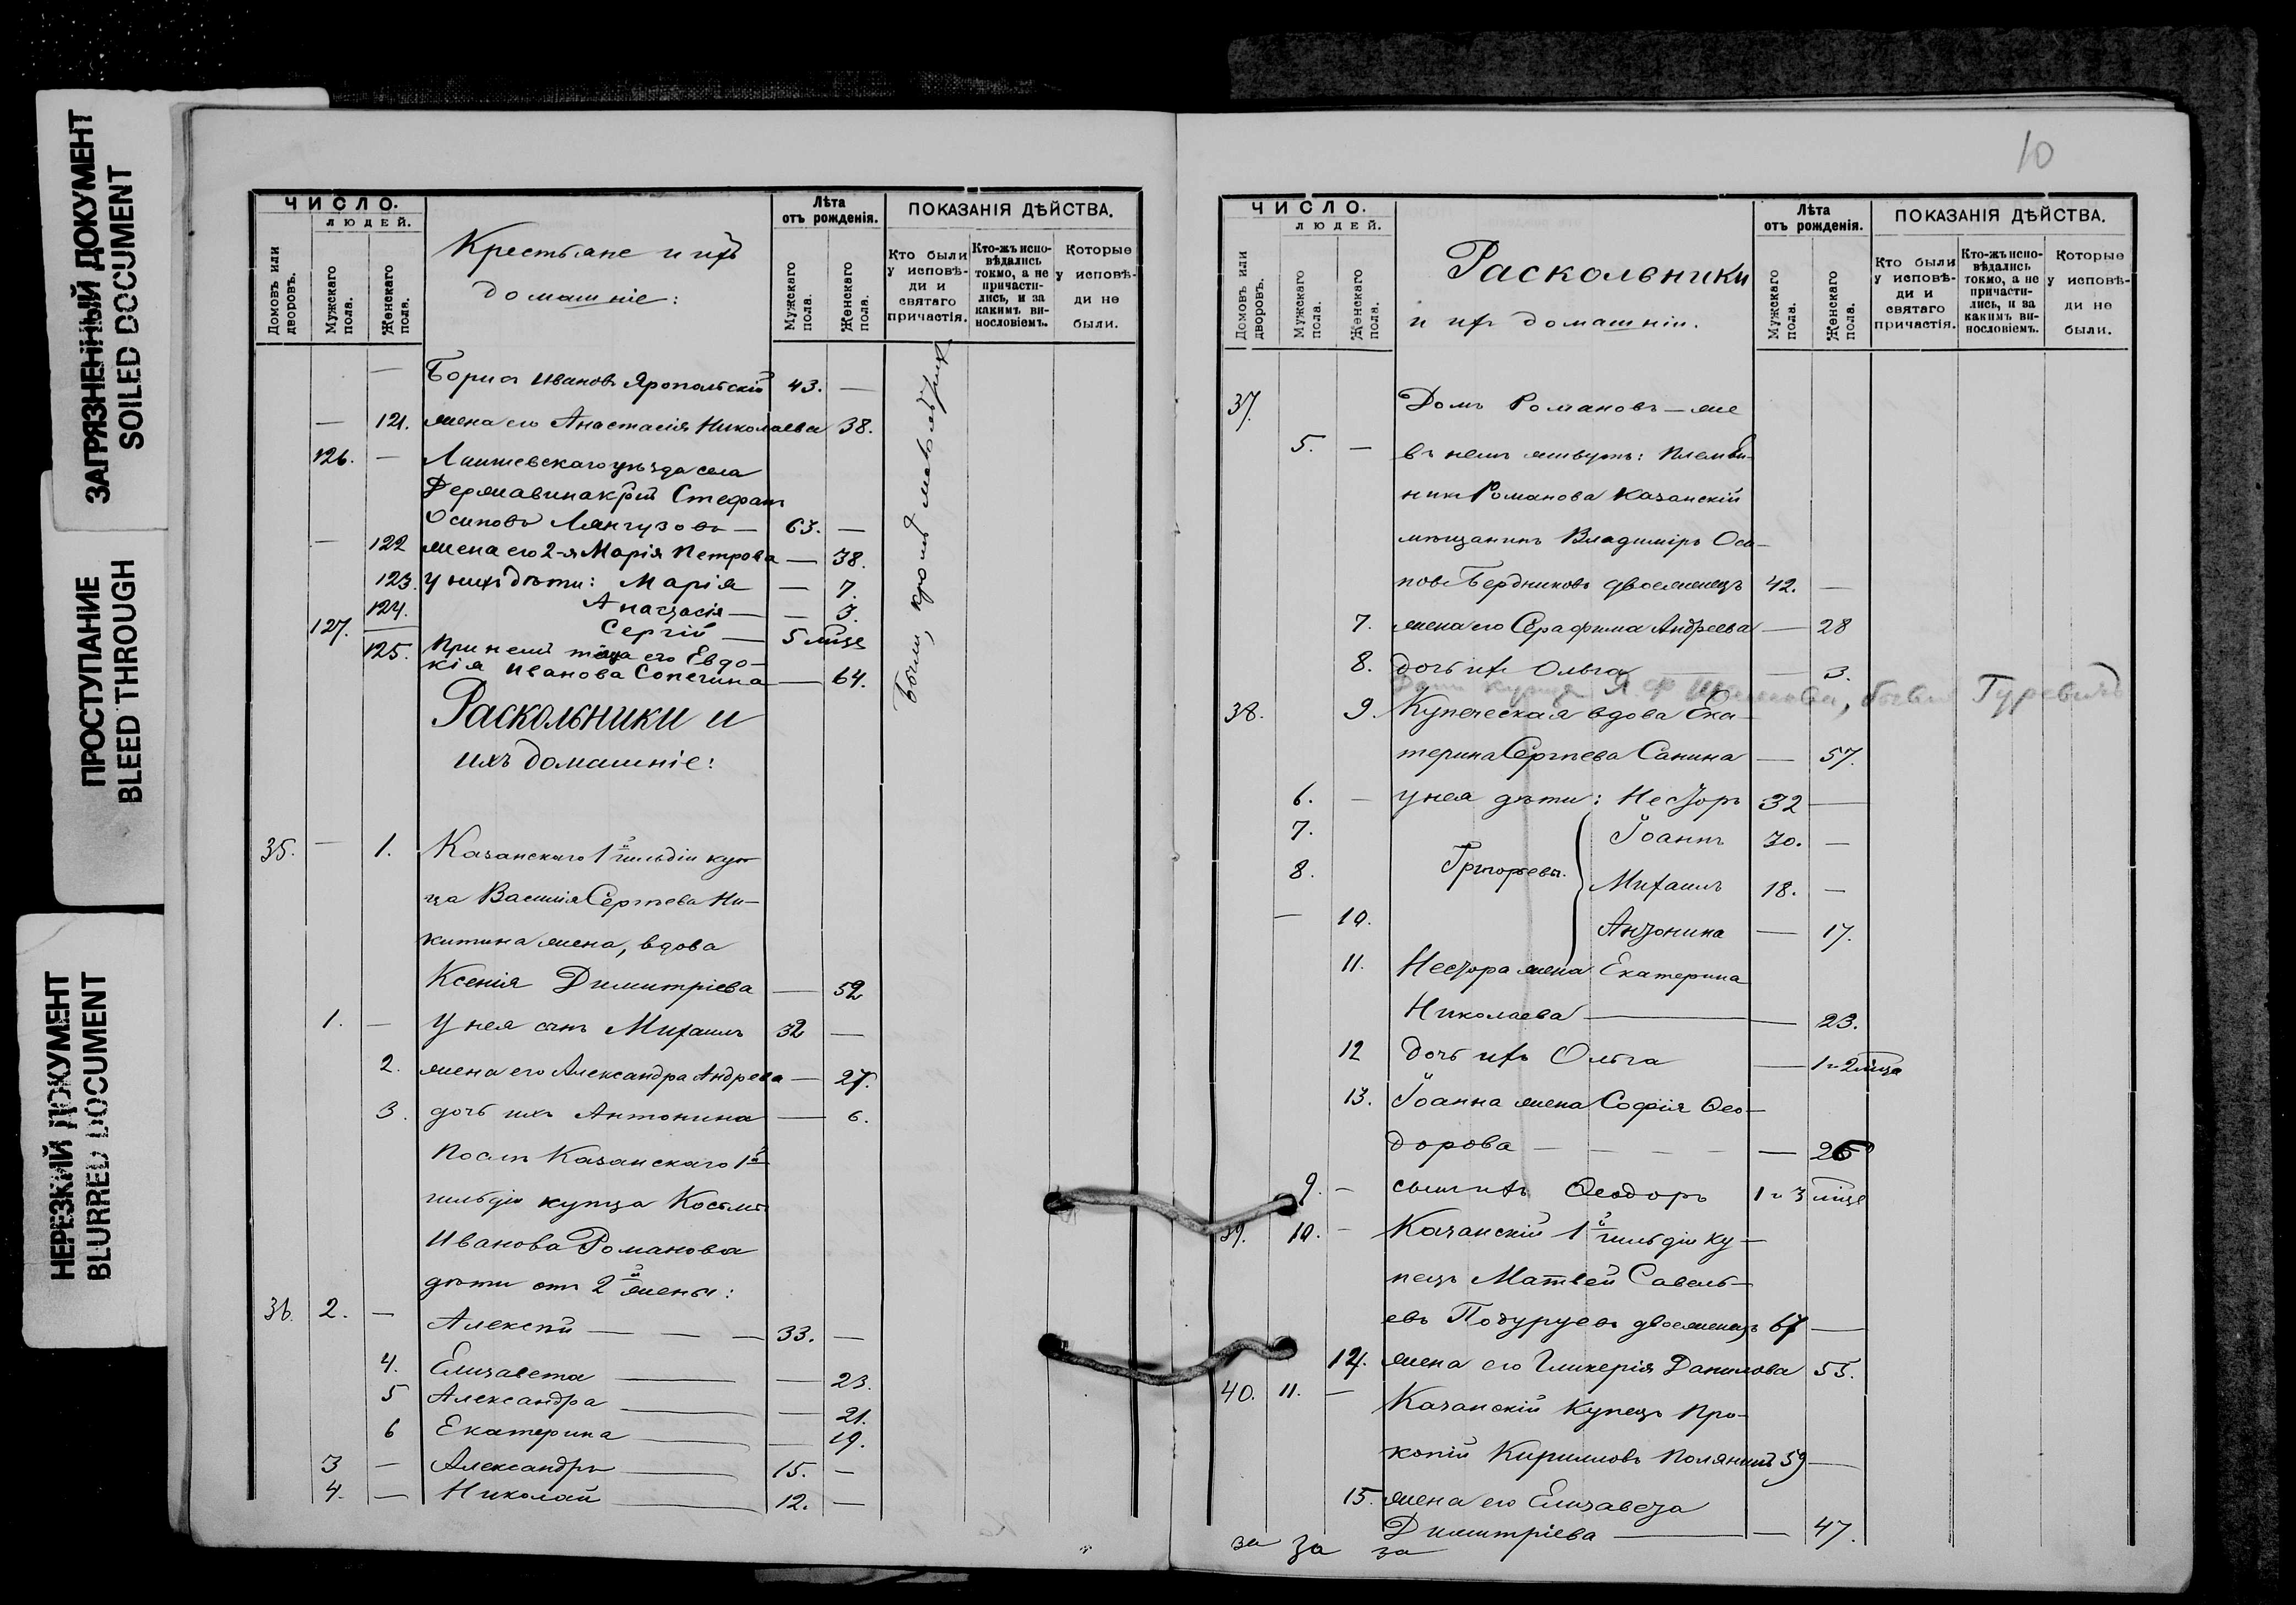 ЗАГРЯЗНЕННЫЙ ДОКУМЕНТ
SOILED DOCUMENT
ПРОСТУПАНИЕ
BLEED THROUGH
НЕРЕЗКИЙ ДОКУМЕНТ
BLURRED DOCUMENT
ЧИСЛО.
ЛЮДЕЙ.
Домовъ или дворовъ.
Мужскаго пола.
Женскаго пола.
Крестьяне и ихъ
домашніе:
Лѣта
отъ рожденія.
Мужскаго пола.
Женскаго пола.
ПОКАЗАНІЯ ДѢЙСТВА.
Кто были у исповѣди и святаго причастія.
Кто-жъ исповѣдались токмо, а не причастились, и за какимъ винословіемъ.
Которые у исповѣди не были.
— Борисъ Ивановъ Яропольскій 43. —
— 121. жена его Анастасія Николаева 38.
126. — Лаишевскаго уѣзда села
Державина кр̃нъ Стефанъ
Осиповъ — 63. —
— 122 жена его 2-я Марія Петрова — 38.
123. у нихъ дѣти: Марія — 7.
124. Анастасія — — 3.
127. Сергій — 5 мѣ̃це
125. При немъ теща его Евдо-
кія Иванова — 64.
Были, кромѣ
Раскольники и
ихъ домашніе:
35. — 1. Казанскаго 1й гильдіи куп-
ца Василія Сергѣева Ни-
китина жена, вдова
Ксенія Димитріева — 52
1. — У нея сынъ Михаилъ 32 —
2. жена его Александра Андреева — 27.
3. дочь ихъ Антонина — 6.
Послѣ Казанскаго 1й
гильдіи купца Космы
Иванова Романова
дѣти отъ 2й жены:
36. 2. — Алексѣй — — — 33. —
4. Елизавета — — 23.
5 Александра — — 21.
6 Екатерина — — 19.
3 — Александръ — 15. —
4. — Николай — 12. —
10
ЧИСЛО.
ЛЮДЕЙ.
Домовъ или дворовъ.
Мужскаго пола.
Женскаго пола.
Раскольники
и ихъ домашніи.
Лѣта
отъ рожденія.
Мужскаго пола.
Женскаго пола.
ПОКАЗАНІЯ ДѢЙСТВА.
Кто были у исповѣди и святаго причастія.
Кто-жъ исповѣдались токмо, а не причастились, и за какимъ винословіемъ.
Которые у исповѣди не были.
37. Домъ Романовъ — же
5. — въ немъ живутъ: Племян-
никъ Романова Казанскій
мѣщанинъ Владиміръ Оси-
повъ Бердниковъ двоеженецъ 42. —
7. жена его Серафима Андреева — 28
8. дочь ихъ Ольга — 3.
Домъ купца Я Ф Гуревичъ
38. 9. Купеческая вдова Ека-
терина Сергѣева Санина — 57.
6. — у нея дѣти: Несторъ 32 —
7. Іоаннъ 30. —
8. Григорьевы. Михаилъ 18. —
— 10. Антонина — 17.
11. Нестора жена Екатерина
Николаева — — 23.
12 дочь ихъ Ольга — 1 и 2 мѣ̃ца
13. Іоанна жена Софія Ѳео-
дорова — — — — — 26
9. — сынъ ихъ Ѳеодоръ 1 и 3 мѣ̃це
39. 10. — Казанскій 1й гильдіи ку-
пецъ Матвей Савель-
евъ Подуруевъ двоеженецъ 67 —
14. жена его Гликерія Данилова 55.
40. 11. — Казанскій купецъ Про-
копій Кирилловъ 59 —
15. жена его Елизавета
Димитріева — — 47.
за за за